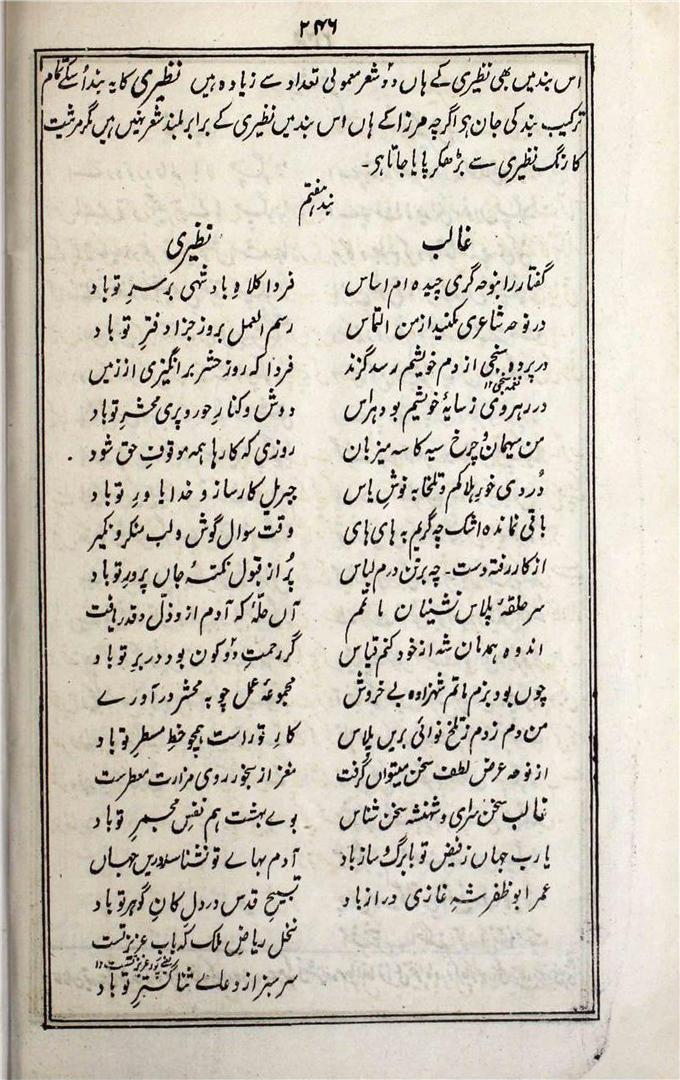 ۲۴۶
اس بند میں بھی نظیری کے ہاں دو شعر معمولی تعداد سے زیادہ ہیں نظیری کا یہ بند اُسکے تمام
ترکیب بند کی جان ہو اگرچہ مرزا کے ہاں اس بند میں نظیری کے برابر بلند شعر نہیں ہیں مگر مرثیت
کا رنگ نظیری سے بڑھکر پایا جاتا ہو۔
بند ہفتم
غالب
گفتار را بنوحہ گری چیدہ ام اساس
در نوحہ شاعری مکنید از من التماس
در پردہ سنجی از دم خویشم رسد گزند
نغمہ سنجی ۱۲
در رہروی ز سایۂ خویشم بود ہراس
من میہمان و چرخ سیہ کاسہ میزبان
دُردی خورِ ہلاکم و تلخابہ نوشِ یاس
باقی نماندہ اشک چہ گریم بہ ہای ہای
از کار رفتہ دست۔ چہ بر تن درم لباس
سر حلقۂ پلاس نشینان ماتمم
اندوہ ہمدمان شہ از خود کنم قیاس
چوں بود بزم ماتم شہزادہ بے خروش
من دم زدم ز تلخ نوائی بریں پلاس
از نوحہ عرضِ لطفِ سخن میتواں گرفت
غالب سخن سرای و شہنشہ سخن شناس
یا رب جہاں ز فیض تو با برگ و ساز باد
عمر ابو ظفر شہِ غازی دراز باد
نظیری
فردا کلاہِ بادشہی بر سرِ تو باد
رسم العمل بروز جزا دفترِ تو باد
فردا کہ روز حشر بر انگیزی از زمیں
دوش و کنارِ حور و پری محشرِ تو باد
روزی کہ کارہا ہمہ موقوفِ حق شود
جبریل کارساز و خدا یاورِ تو باد
وقت سوال گوش و لب منکر و نکیر
پُر از قبول نکتۂ جاں پرورِ تو باد
آں حلّہ کہ آدم ازو ذلّ و قدر یافت
گر رحمتِ دو کون بود در برِ تو باد
مجموعۂ عمل چو بہ محشر در آورے
کارِ تو راست ہمچو خطِ مسطرِ تو باد
مغز از بخور روی مزارت معطرست
بوے بہشت ہم نفسِ مجمرِ تو باد
آدم بہاے تو نشناسد دریں جہاں
تسبیح قدس در دل کانِ گوہرِ تو باد
نخل ریاضِ ملک کہ باب عزیز تست
سرسبز از دعاے ثنا گسترِ تو باد